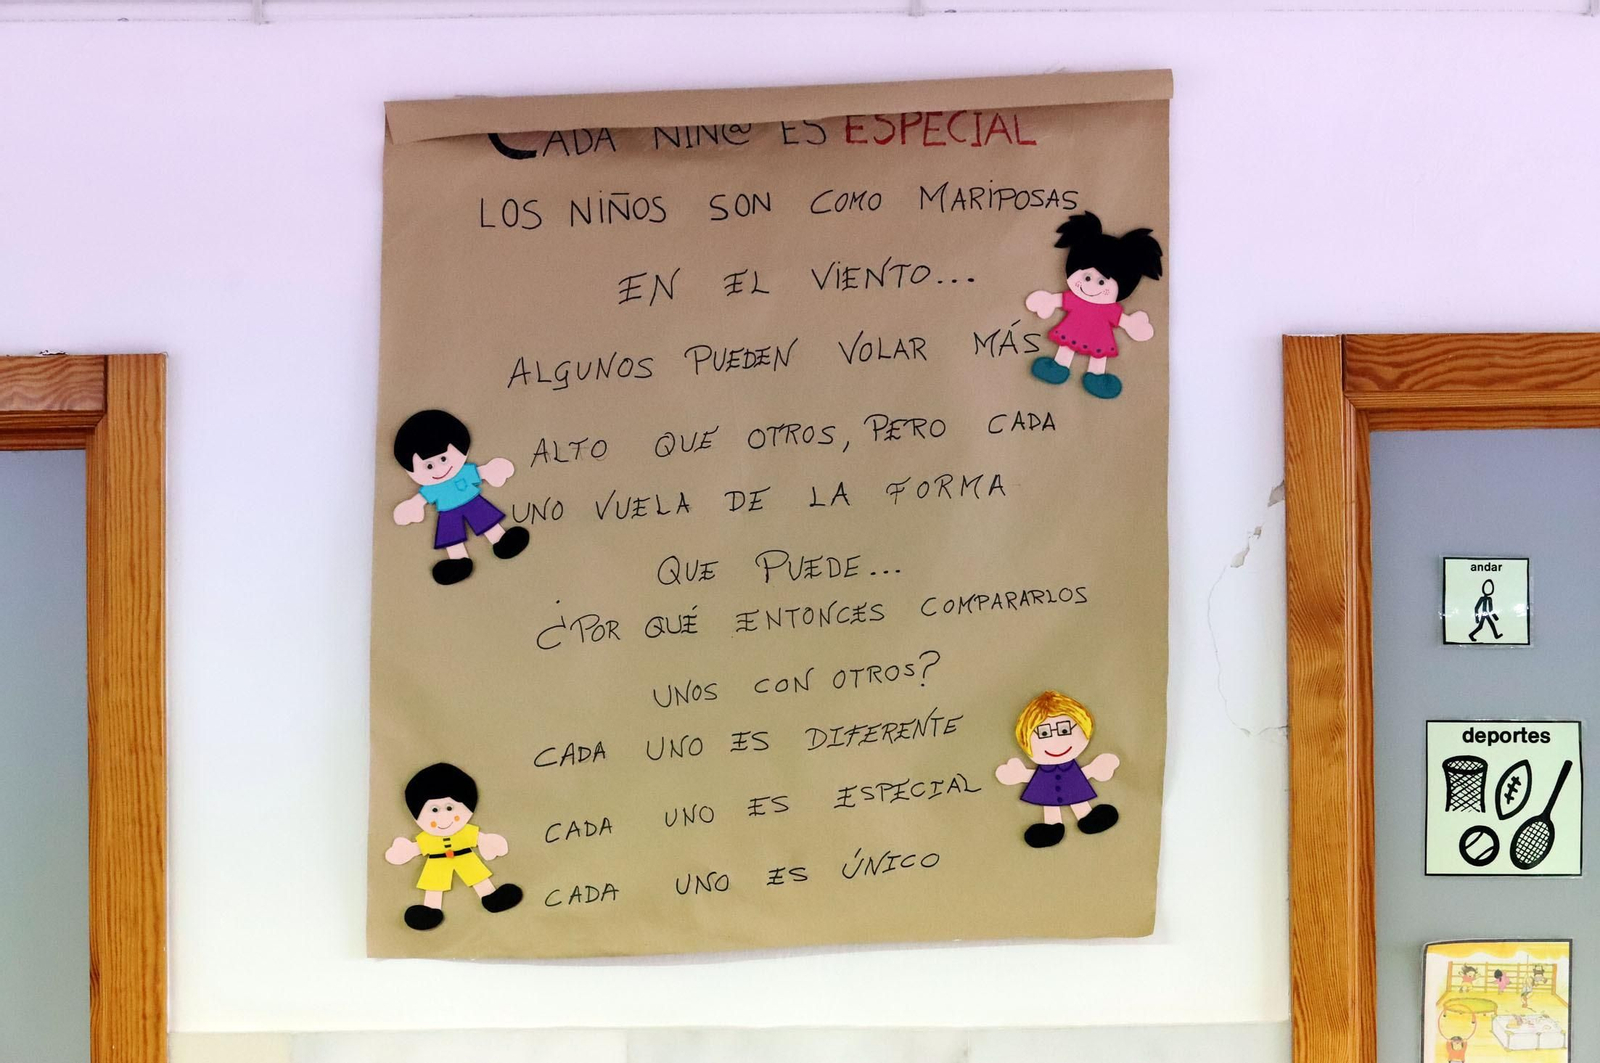 CADA NIÑ@ ES ESPECIAL
LOS NIÑOS SON COMO MARIPOSAS
EN EL VIENTO...
ALGUNOS PUEDEN VOLAR MÁS
ALTO QUE OTROS, PERO CADA
UNO VUELA DE LA FORMA
QUE PUEDE...
¿POR QUÉ ENTONCES COMPARARLOS
UNOS CON OTROS?
CADA UNO ES DIFERENTE
CADA UNO ES ESPECIAL
CADA UNO ES ÚNICO
andar
deportes